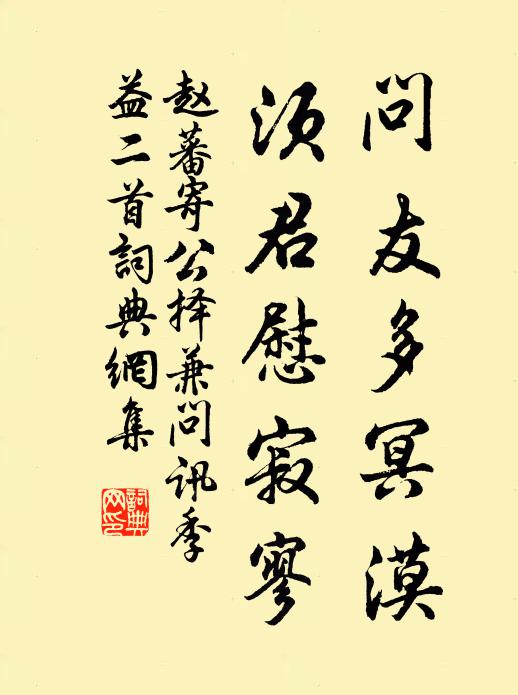 问友多冥漠
须君慰寂寥
赵蕃寄公择兼问讯季
益二首詞典網集
詞典网印